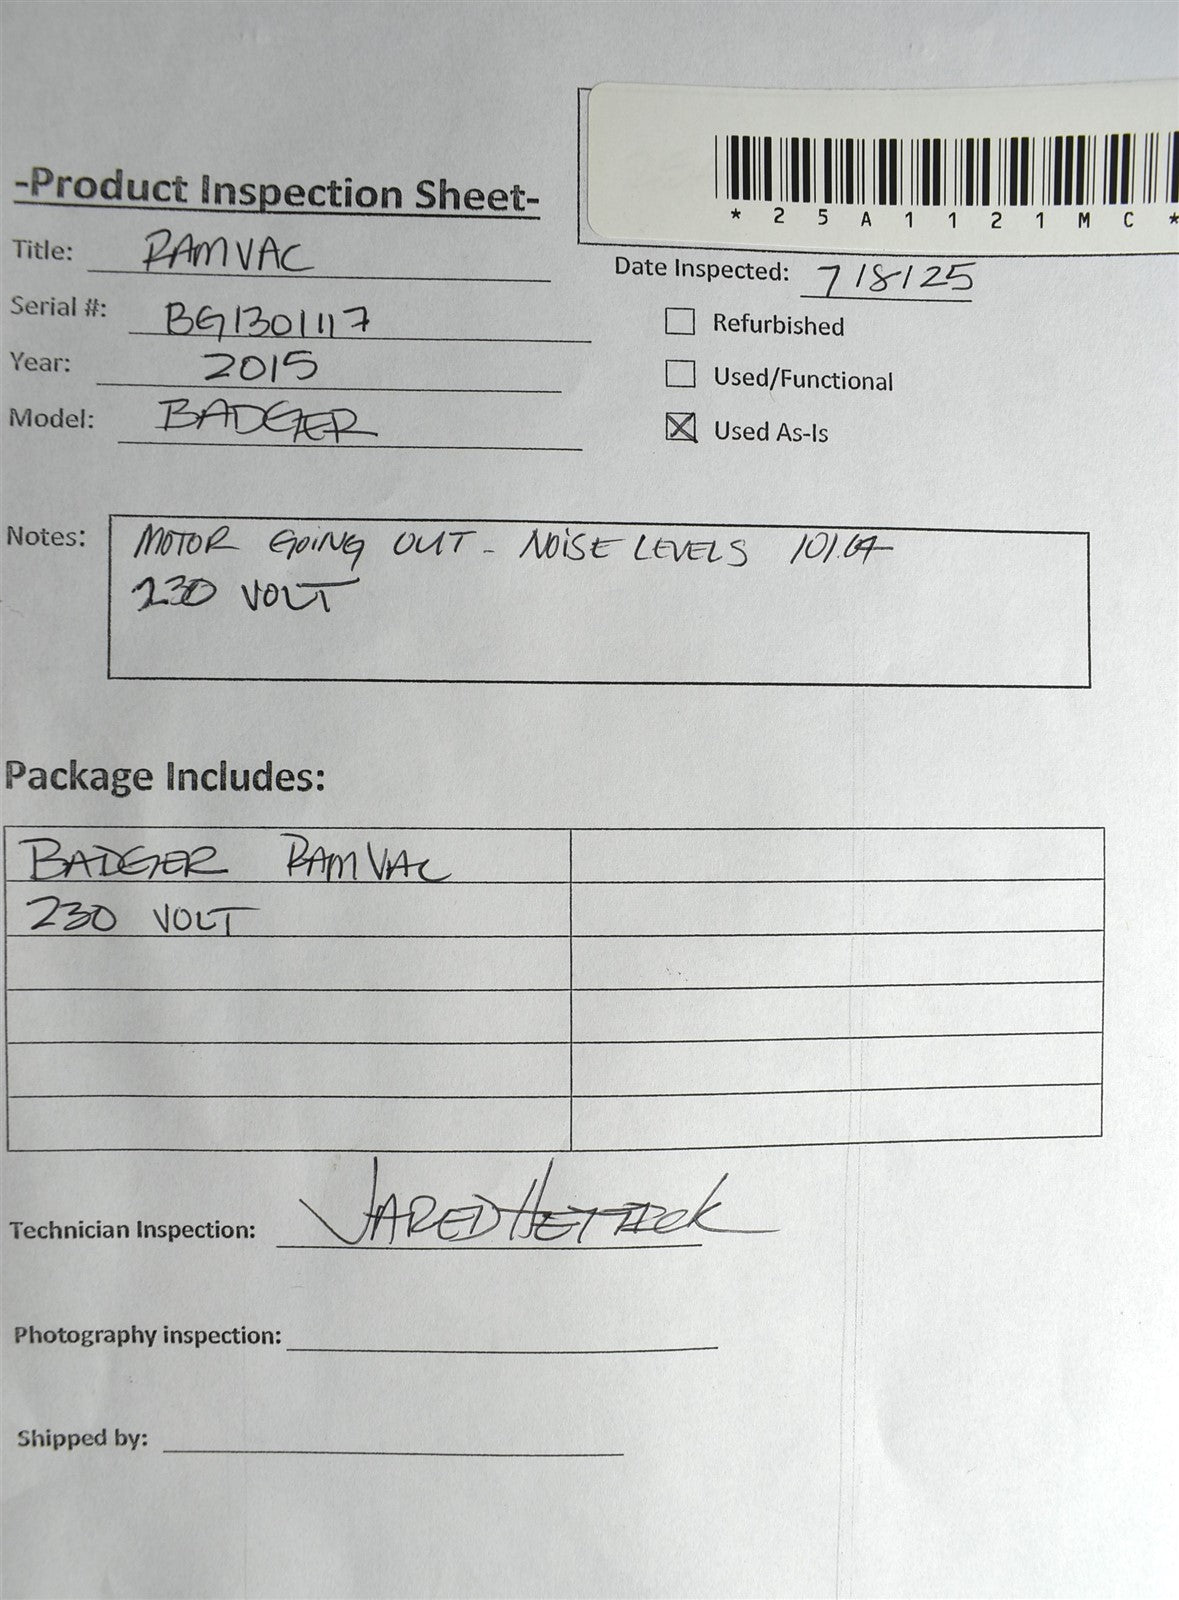 *25A1121MC*
-Product Inspection Sheet-
Title: RAMVAC
Date Inspected: 7/8/25
Serial #: BG1301117
Refurbished
Year: 2015
Used/Functional
Model: BADGER
Used As-Is
Notes: MOTOR GOING OUT - NOISE LEVELS
230 VOLT
Package Includes:
BADGER RAMVAC
230 VOLT
Technician Inspection: JARED
Photography inspection:
Shipped by: